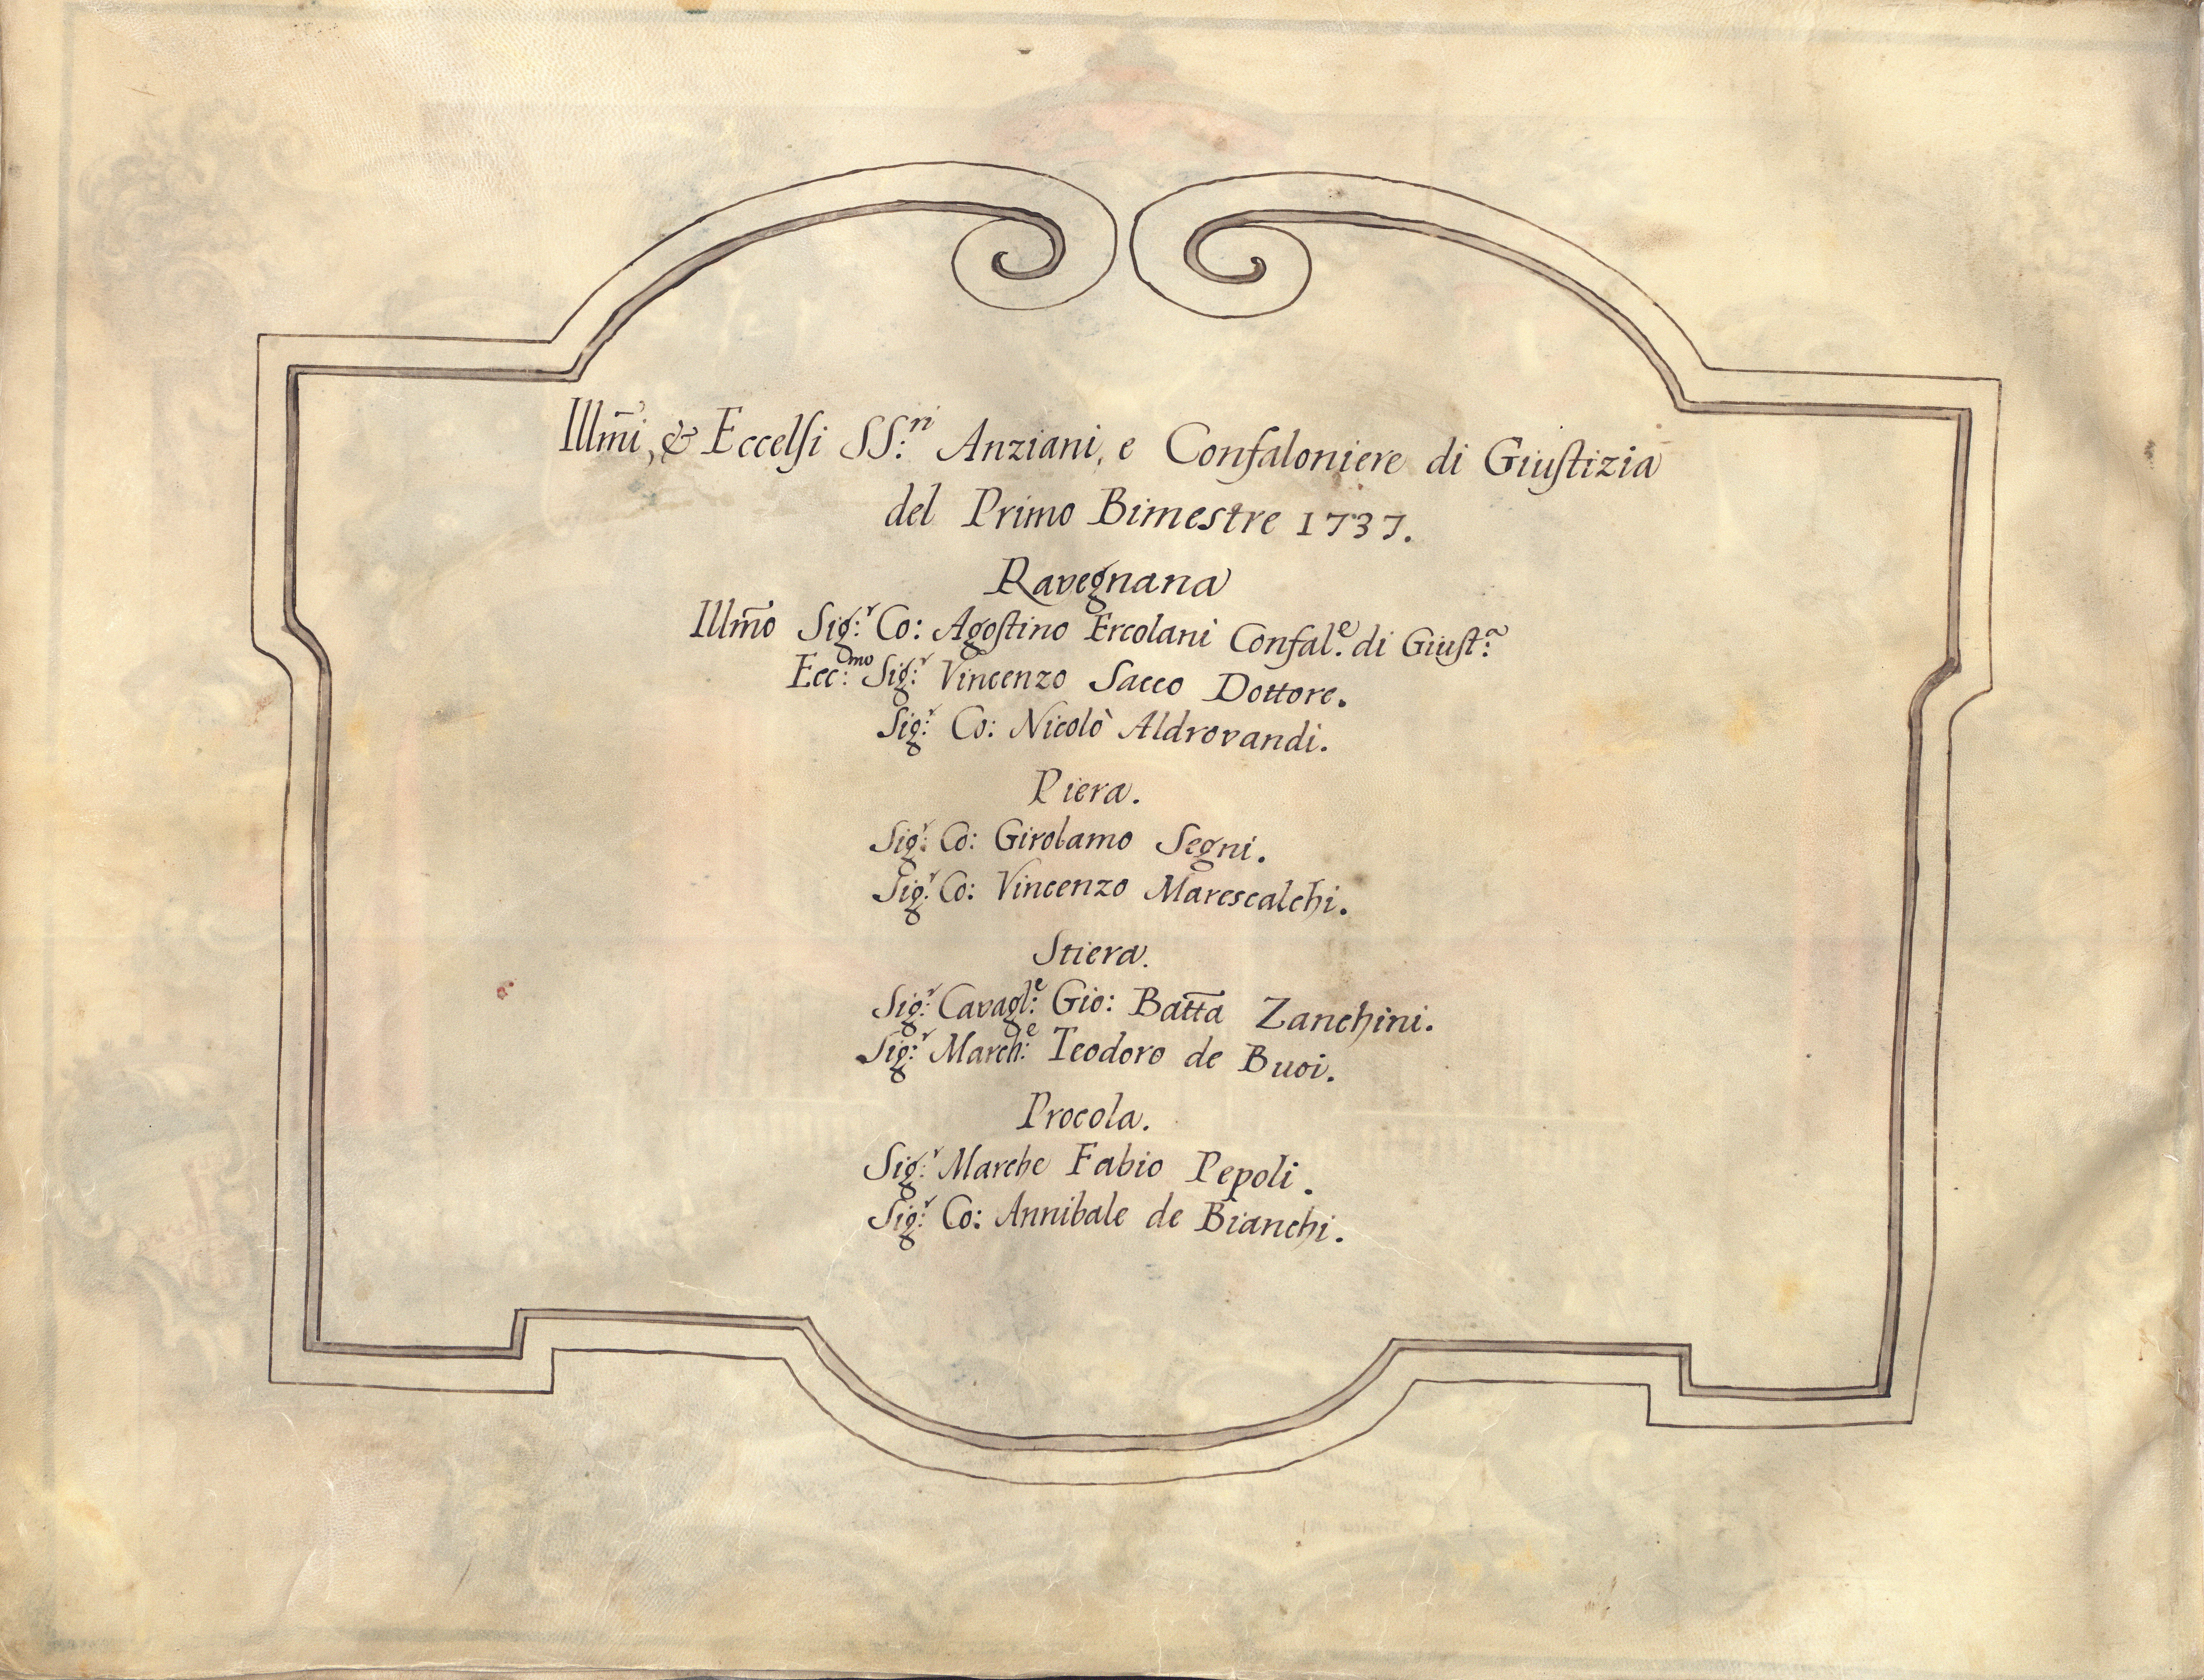 Illm̃i, & Eccelſi SS:ri Anziani, e Confaloniere di Giuſtizia
del Primo Bimestre 1737.
Ravegnana
Illm̃o Sig:r Co: Agoſtino Ercolani Confal:e di Giuſt:a
Ecc:mo Sig:r Vincenzo Sacco Dottore.
Sig:r Co: Nicolò Aldrovandi.
Piera.
Sig:r Co: Girolamo Segni.
Sig:r Co: Vincenzo Marescalchi.
Stiera.
Sig:r Cavagl:e Gio: Batt̃a Zanchini.
Sig:r March:e Teodoro de Buoi.
Procola.
Sig:r Marche Fabio Pepoli.
Sig:r Co: Annibale de Bianchi.